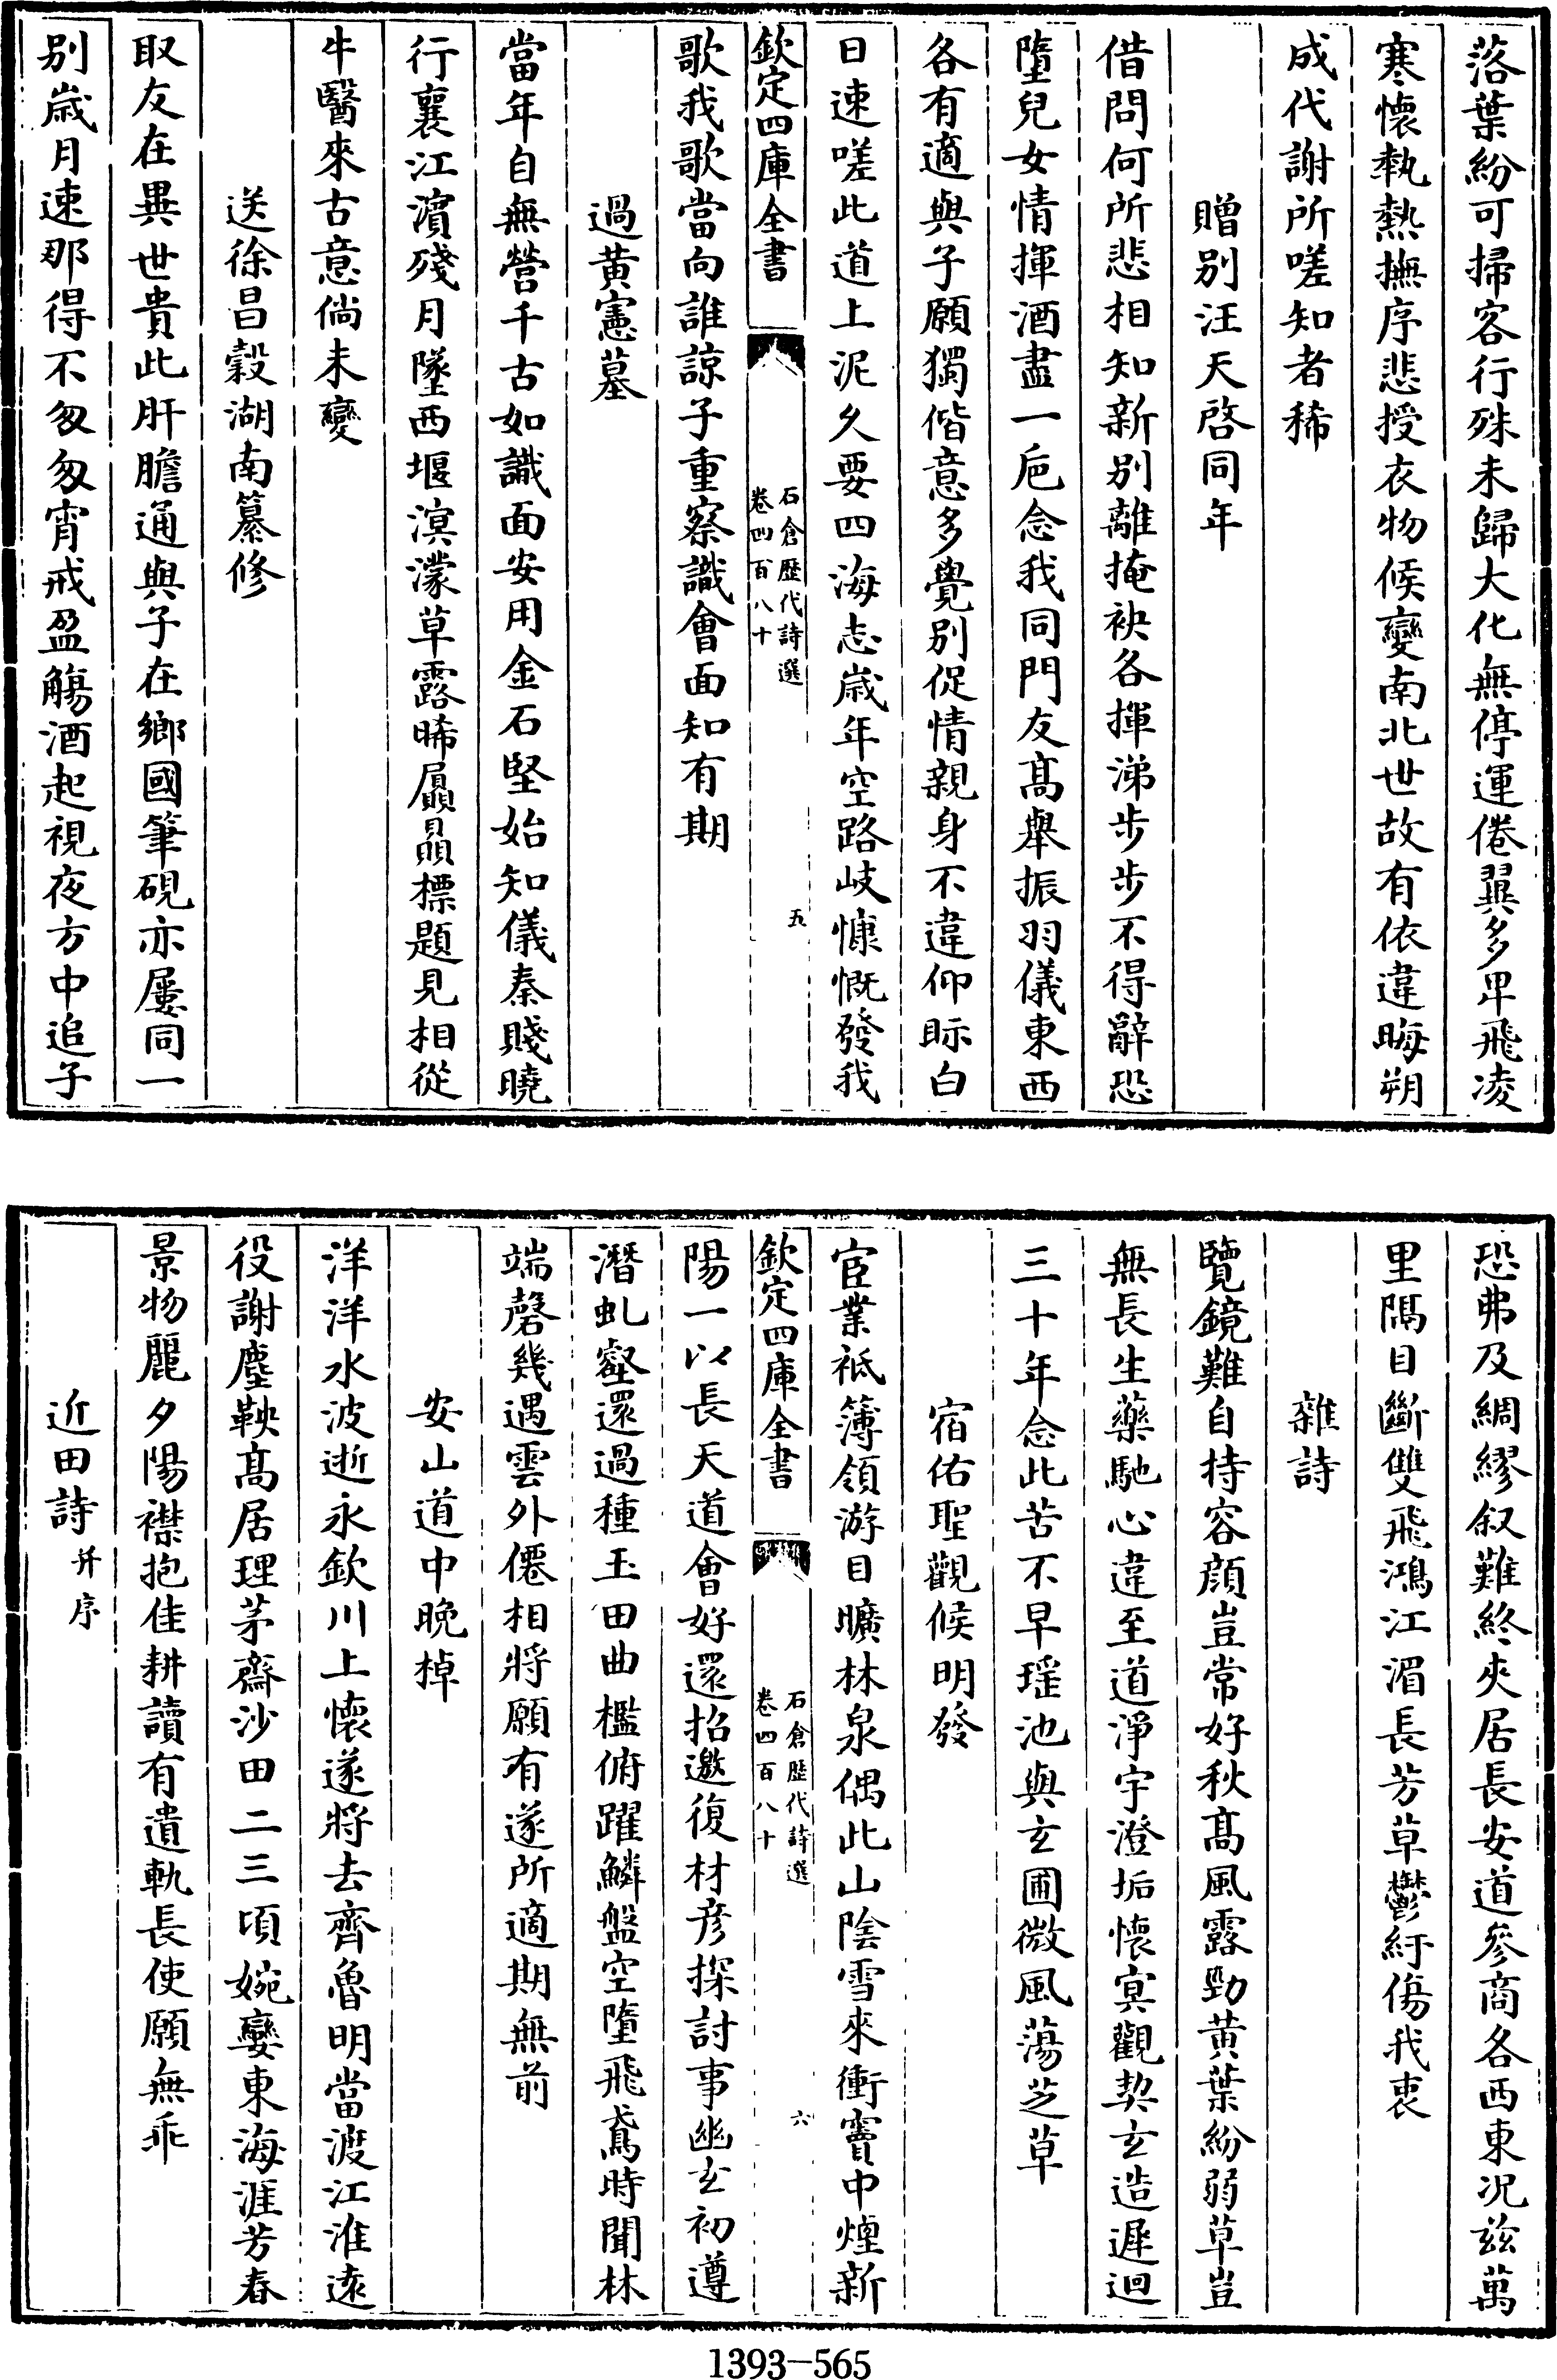 落葉紛可掃客行殊未歸大化無停運倦翼多卑飛凌
寒懷執熱撫序悲授衣物候變南北世故有依違晦朔
成代謝所嗟知者稀
贈别汪天啓同年
借問何所悲相知新别離掩袂各揮涕步步不得辭恐
墮兒女情揮酒盡一巵念我同門友髙舉振羽儀東西
各有適與子願獨偕意多覺别促情親身不違仰眎白
日速嗟此道上泥久要四海志嵗年空路岐慷慨發我
欽定四庫全書
石倉歷代詩選
卷四百八十
五
歌我歌當向誰諒子重察識會面知有期
過黄憲墓
當年自無營千古如識面安用金石堅始知儀秦賤曉
行襄江濵殘月墜西堰溟濛草露晞屭贔標題見相從
牛醫來古意倘未變
送徐昌穀湖南纂修
取友在異世貴此肝膽通與子在鄉國筆硯亦屢同一
别嵗月速那得不匆匆宵戒盈觴酒起視夜方中追子
恐弗及綢繆叙難終夾居長安道參商各西東况兹萬
里隅目斷雙飛鴻江湄長芳草鬱紆傷我衷
雜詩
覽鏡難自持容顔豈常好秋髙風露勁黄葉紛弱草豈
無長生藥馳心違至道淨宇澄垢懐㝠觀契玄造遲迴
三十年念此苦不早瑶池與玄圃微風蕩芝草
宿佑聖觀候明發
宦業袛簿領游目曠林泉偶此山陰雪來衝竇中煙新
欽定四庫全書
石倉歷代詩選
卷四百八十
六
陽一以長天道會好還招邀復材彦探討事幽玄初遵
潛虬壑還過種玉田曲檻俯躍鱗盤空墮飛鳶時聞林
端磬幾遇雲外僊相將願有遂所適期無前
安山道中晚棹
洋洋水波逝永欽川上懷遂將去齊魯明當渡江淮逺
役謝塵鞅髙居理茅齋沙田二三頃婉孌東海涯芳春
景物麗夕陽襟抱佳耕讀有遺軌長使願無乖
近田詩并序
1393—565